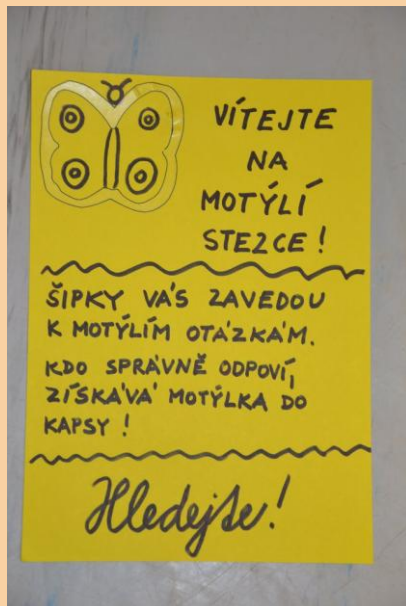 VÍTEJTE
NA
MOTÝLÍ
STEZCE!
ŠIPKY VÁS ZAVEDOU
K MOTÝLÍM OTÁZKÁM.
KDO SPRÁVNĚ ODPOVÍ,
ZÍSKÁVÁ MOTÝLKA DO
KAPSY!
Hledejte!